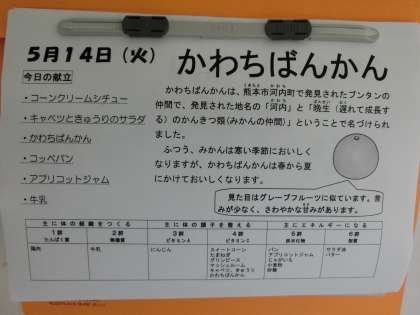 5月14日（火）
かわちばんかん
今日の献立
・コーンクリームシチュー
・キャベツときゅうりのサラダ
・かわちばんかん
・コッペパン
・アプリコットジャム
・牛乳
かわちばんかんは、熊本市河内町で発見されたブンタンの
仲間で、発見された地名の「河内」と「晩生（遅れて成長す
る）のかんきつ類（みかんの仲間）」ということで名づけられ
ました。
ふつう、みかんは寒い季節においしく
なりますが、かわちばんかんは春から夏
にかけておいしくなります。
見た目はグレープフルーツに似ています。苦
みが少なく、さわやかな甘みがあります。
主に体の組織をつくる 主に体の調子を整える 主にエネルギーになる
1群 2群 3群 4群 5群 6群
たんぱく質 無機質 ビタミンA ビタミンC 炭水化物 脂質
鶏肉 牛乳 にんじん スイートコーン パン サラダ油
たまねぎ アプリコットジャム バター
グリンピース じゃがいも
マッシュルーム 小麦粉
キャベツ、きゅうり 砂糖
かわちばんかん